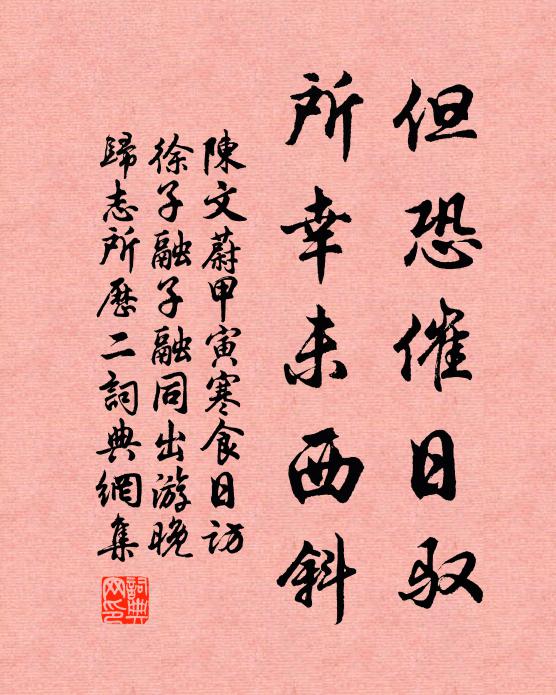 但恐催日驭
所幸未西斜
陳文蔚甲寅寒食日訪
徐子融子融同出游晚
歸志所歷二詞典網集
詞典網印